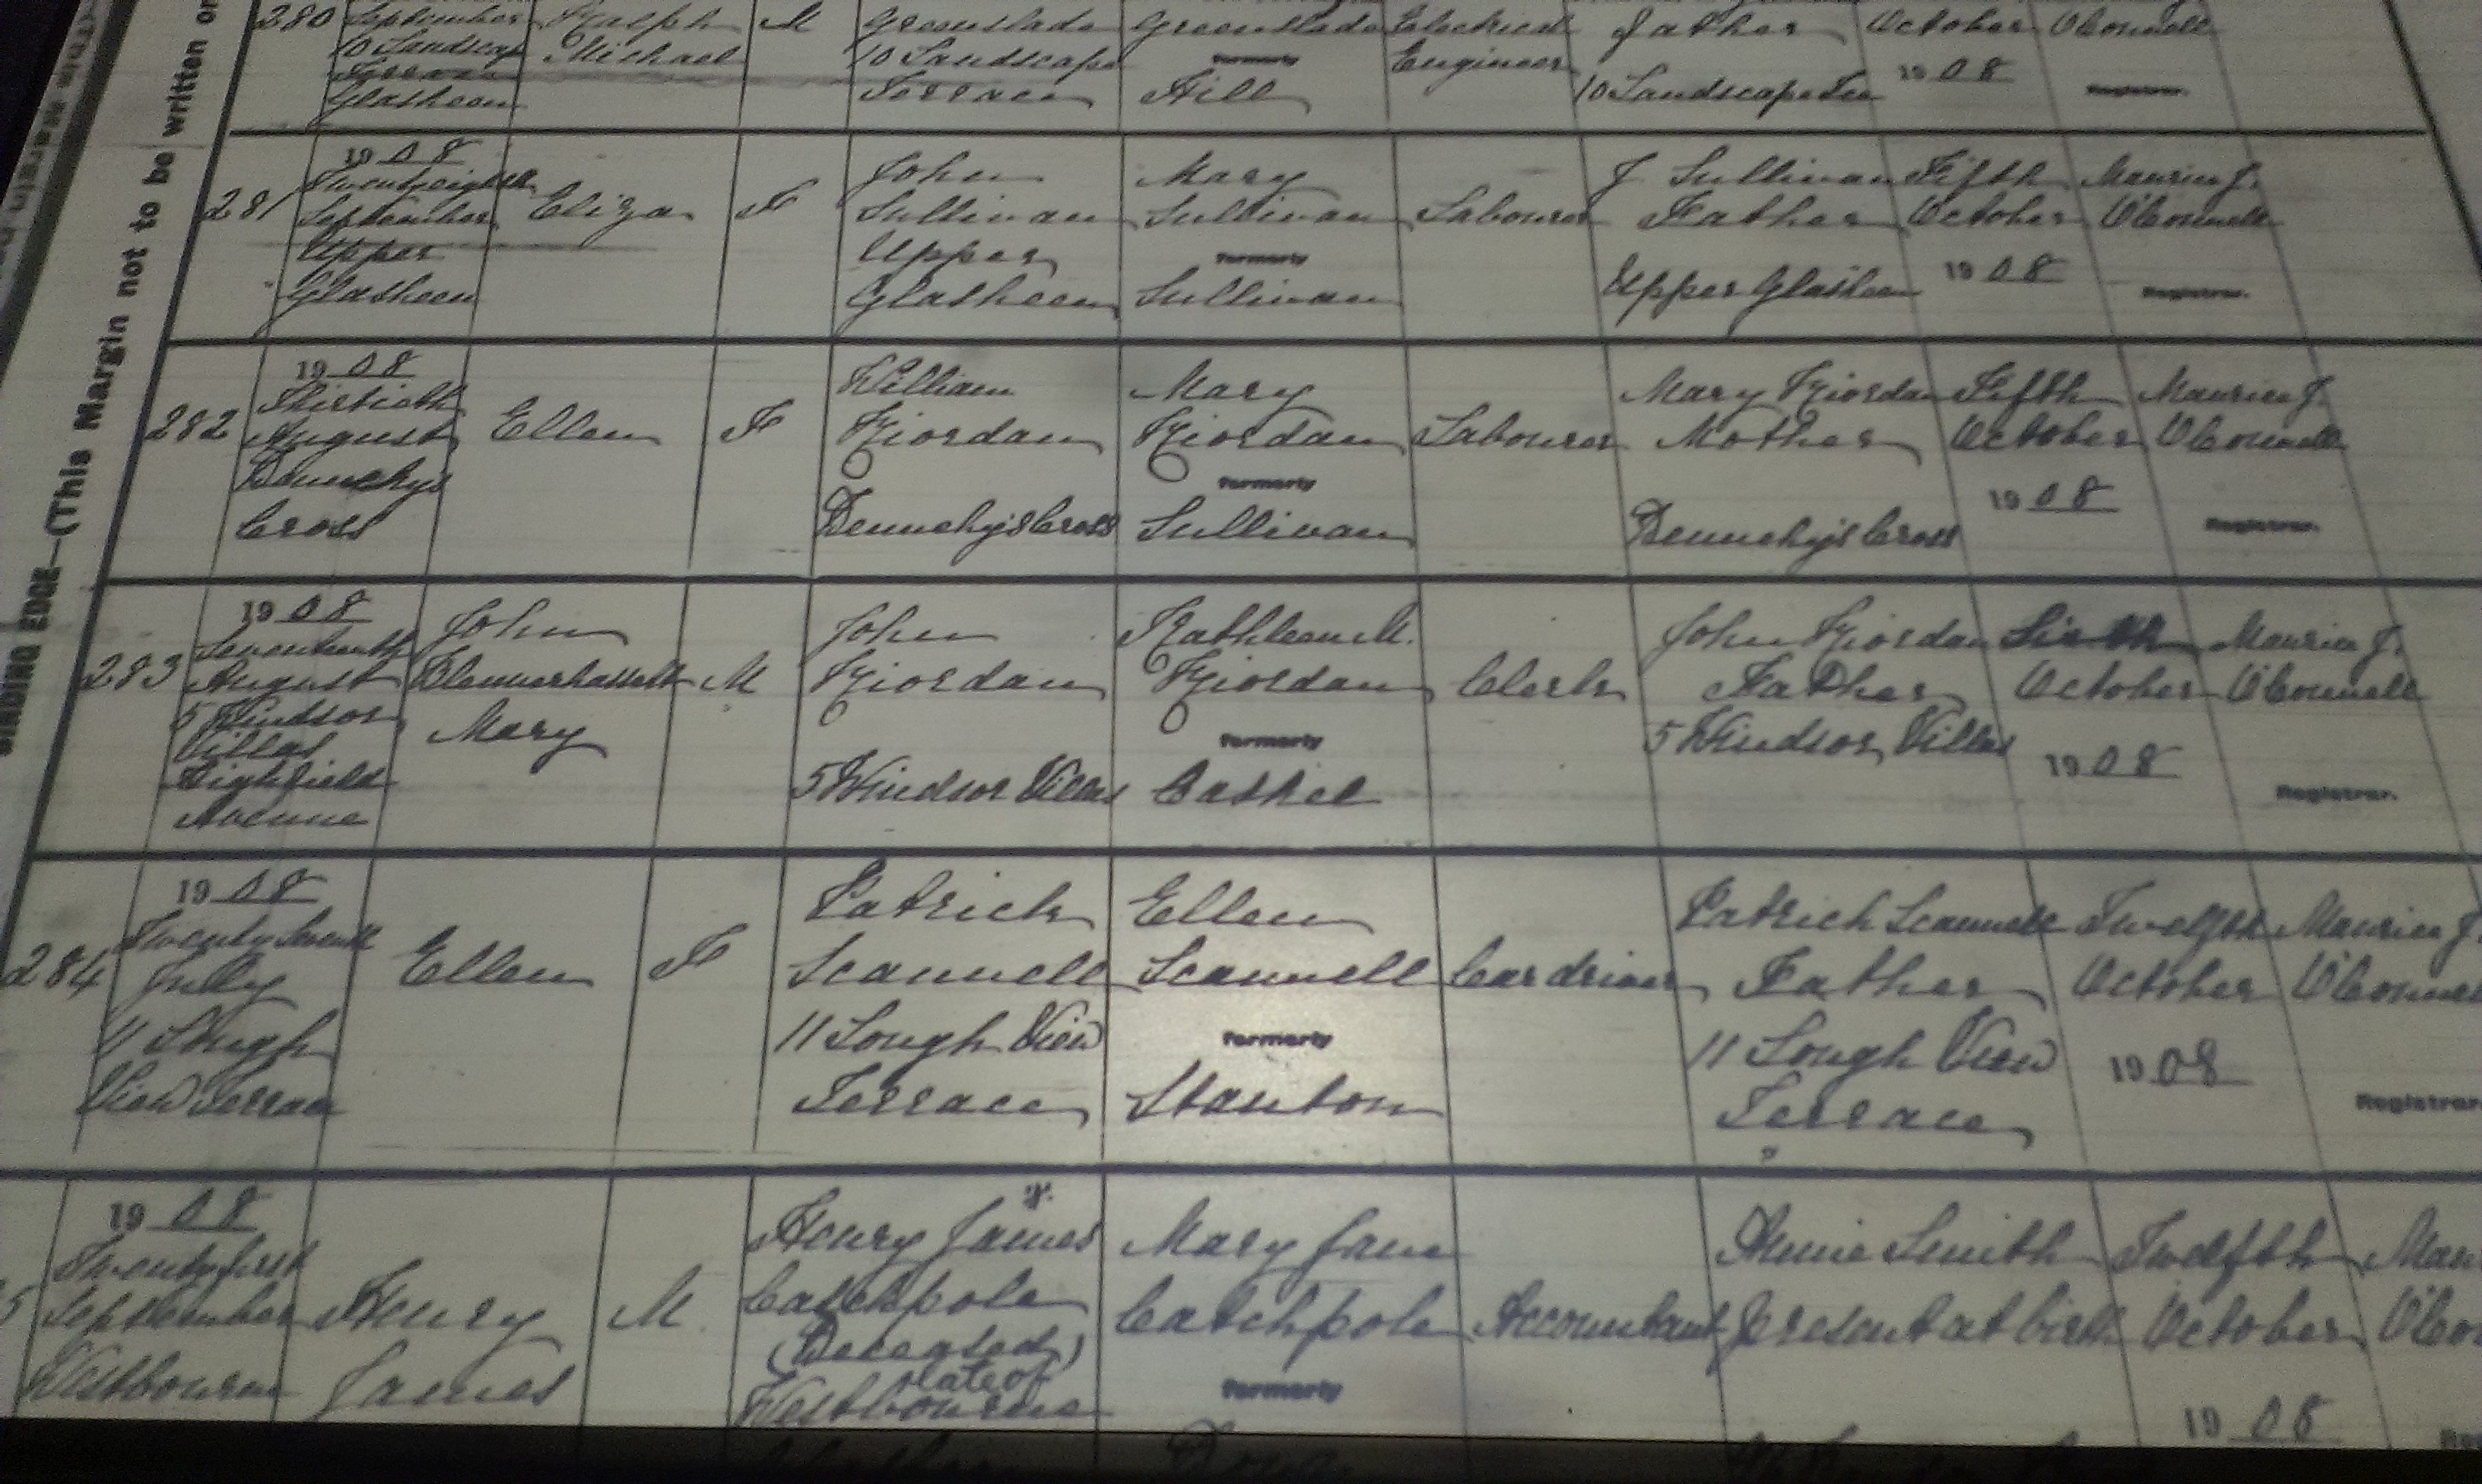 BINDING EDGE—(This Margin not to be written on
280 September Ralph M Greenslade Greenslade Electrical Father October O'Connell
10 Landscape Michael 10 Landscape formerly Engineer 1908
Terrace Terrace Hill 10 Landscape Ter Registrar.
Glasheen
1908
Twentyeighth John Mary J Sullivan Fifth Maurice J.
281 September Eliza F Sullivan Sullivan Labourer Father October O'Connell
Upper Upper formerly
Glasheen Glasheen Sullivan Upper Glasheen 1908 Registrar.
1908
Thirtieth William Mary Mary Riordan Fifth Maurice J.
282 August Ellen F Riordan Riordan Labourer Mother October O'Connell
Dennehys formerly 1908
Cross Dennehys Cross Sullivan Dennehys Cross Registrar.
1908
Seventeenth John John Kathleen M. John Riordan Sixth Maurice J.
283 August Blennerhassett M Riordan Riordan Clerk Father October O'Connell
5 Windsor Mary formerly 5 Windsor Villas
Villas 1908
Highfield 5 Windsor Villas Cashel Registrar.
Avenue
1908
Twenty Seventh Patrick Ellen Patrick Scannell Twelfth Maurice J.
284 July Ellen F Scannell Scannell Car driver Father October O'Connell
11 Lough 11 Lough View formerly 11 Lough View 1908
View Terrace Terrace Stanton Terrace Registrar.
1908
Twenty first Henry James Mary Jane Annie Smith Twelfth
5 September Henry M. Catchpole Catchpole Accountant Present at birth October
(Deceased)
late of
Westbourne James Westbourne formerly 1908